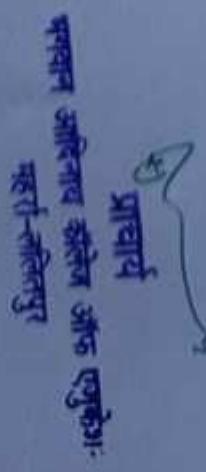 प्राचार्य
भगवान आदिनाथ कॉलेज ऑफ एजुकेशन
महर्रा-ललितपुर